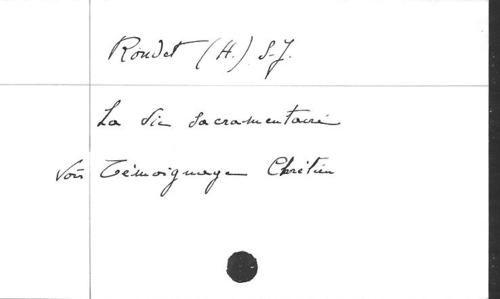 Rondet (H.) S.J.
La Vie Sacramentaire
Voir Témoignage Chrétien